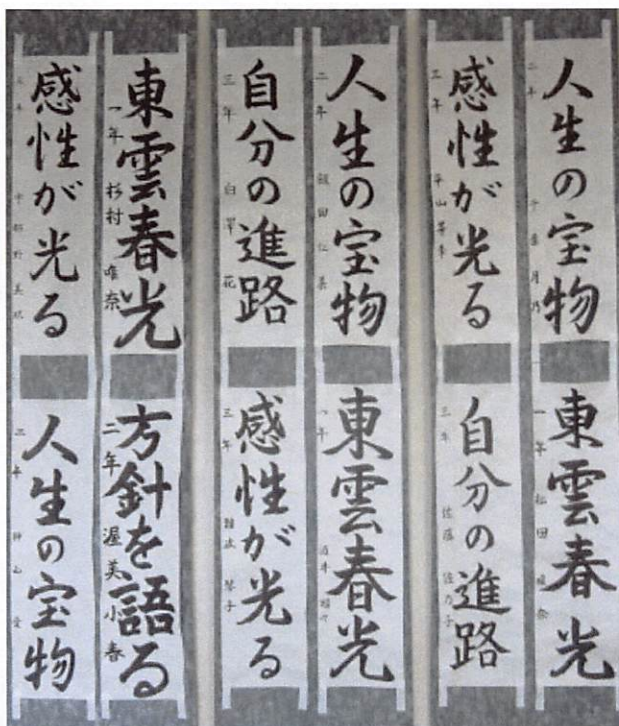 人生の宝物
東雲春光
一年 松田
感性が光る
三年
自分の進路
三年 佐藤 佐乃子
人生の宝物
二年 飯田
東雲春光
一年
自分の進路
三年 白澤 花
感性が光る
三年 難波 琴子
東雲春光
一年 杉村 唯奈
方針を語る
二年 渥美 小春
感性が光る
人生の宝物
二年